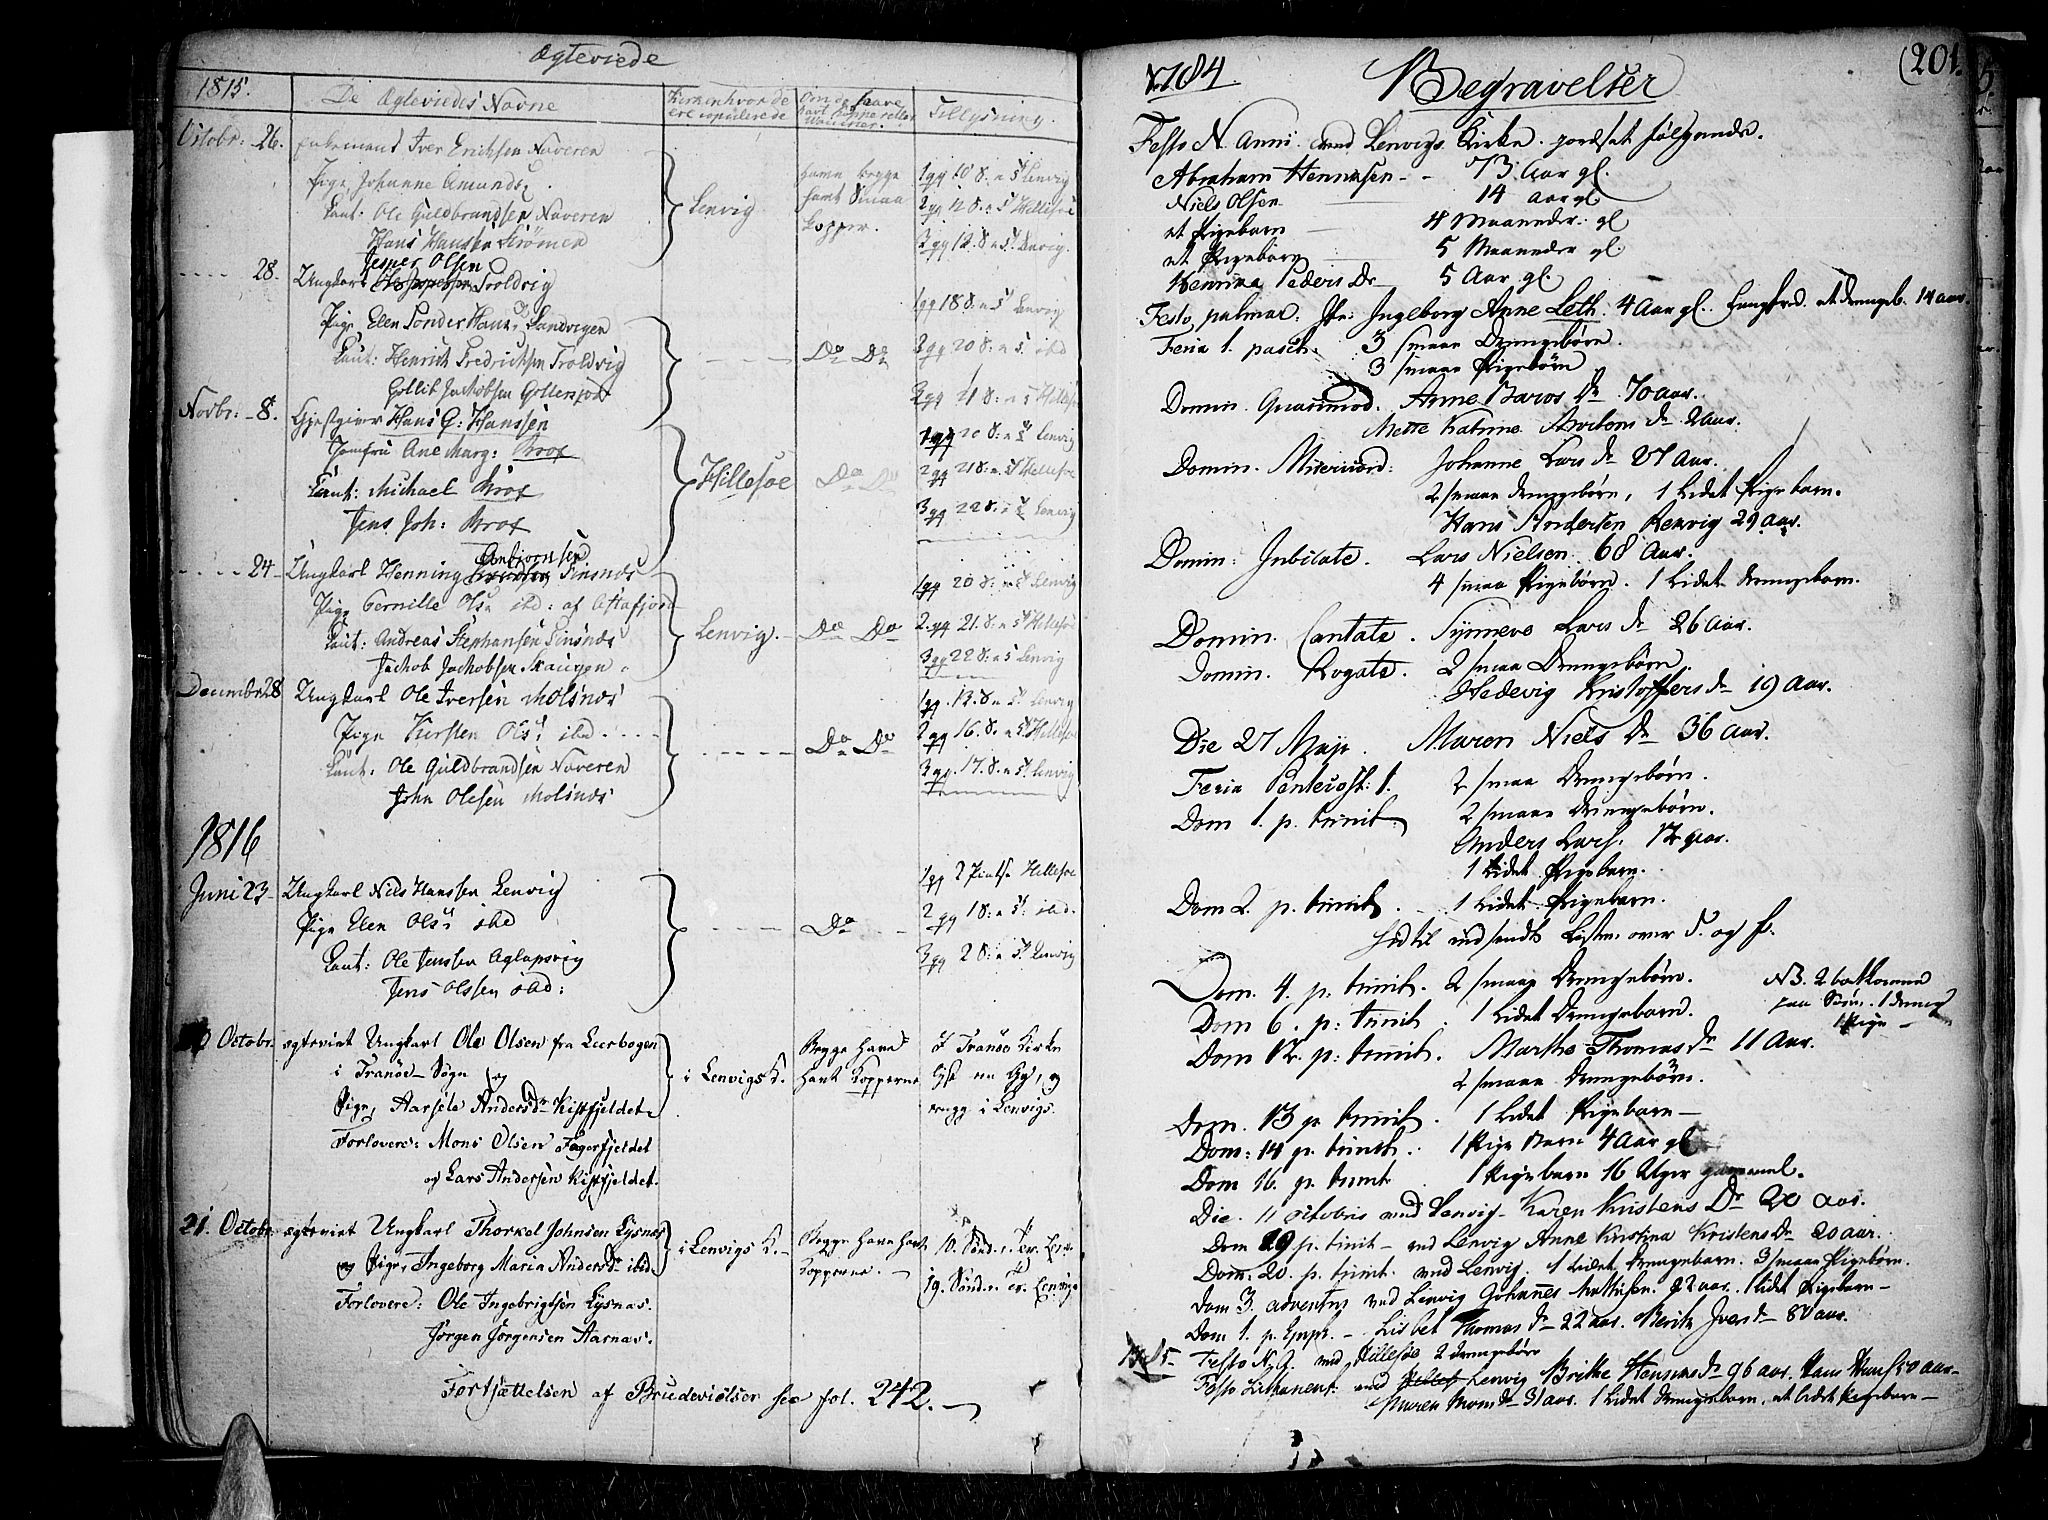 Ægteviede
1815.
De Ægteviedes Navne
Kirken hvor de ere copulerede
Om de have havt Kopper eller Vaccine.
Tillysning.
Octobr: 26. Enkemand Iver Erichsen Naveren
Pige Johanne Amunds
Caut: Ole Guldbrandsen Naveren
Hans Hansen Strømen
Lenvig
have begge
havt Smaa
Kopper.
1 gg 10 S: n 5t Lenvig
2 gg 12 S: n 5t Hillesøe
3 gg 13. S: n 5t Lenvig.
28. Ungkarl Jesper Olsen Troldvig
Pige Elen Sønder Hans Sandvigen
Caut: Henrich Fredrichsen Troldvig
Gollit Jachobsen Gollenfjord
Do Do
1 gg 18 S: n 5t Lenvig
2 gg 20 S: n 5t ibd
3 gg 21 S: n 5 Hillesø
Novbr: 8. Gjestgiver Hans G: Hanssen
Jomfru Ane Marg: Brox
Caut: Michael Brox
Jens Joh: Brox
Hillesøe
Do Do
1 gg 20 S: n 5t Lenvig
2 gg 21 S: n 5t Hillesøe
3 gg 22 S: n 5t Lenvig
24 Ungkarl Henning Anbiornsen Finsnæs
Pige Pernille Ols ibd: af Astafjord
Caut: Andreas Stephansen Finsnæs
Jachob Jachobsen Skaugen
Lenvig.
Do Do
1 gg 20 S: n 5t Lenvig
2. gg 21. S: n 5t Hillesøe
3 gg 22 S: n 5 Lenvig
Decembr 28 Ungkarl Ole Iversen Molsnæs
Pige Kirsten Ols ibd.
Caut: Ole Guldbrandsen Naveren
John Olesen Molsnæs
Do Do
1 gg. 13. S: n 5t Lenvig
2 gg 16. S: n 5t Hillesøe
3 gg. 17. S: n 5t Lenvig
1816
Juni 23 Ungkarl Niels Hanssen Lenvig
Pige Elen Ols ibd
Caut: Ole Jenssen Aglapsvig
Jens Olssen ibd:
Do
1 gg 2 Pintse Hillesøe
2 gg 1 S: n 5t: ibd.
3 gg 2 S: n 5t. Lenvig
Octobr. egteviet Ungkarl Ole Olsen fra Leerbogen
i Tranöe Sogn og
Pige, Aarsele Andersdr Kistfjeldet
Forlovere: Mons Olsen Fagerfjeldet
og Lars Andersen Kistfjeldet.
i Lenvigs K.
Begge have
havt Kopperne
I Tranöe Kirke
lyst en Gg, og
engg i Lenvigs.
21. Octobr: egteviet Ungkarl Thorkel Johnsen Lysnæs
og Pige, Ingeborg Maria Andersdr ibd.
Forlovere: Ole Ingebrigtsen Lysnæs.
Jörgen Jörgensen Aarnæs.
i Lenvigs K.
Begge have havt
Kopperne.
10. Sönd. n. Tr. Lenv.
19. Sönd. n. Tr. Lenvigs
Fortsættelsen af Brudevielser see fol. 242.
184
Begravelser
(201.
Festo N. Anni ved Lenvigs Kirke jordset følgende.
Abraham Hennsen 73. Aar gl.
Niels Olsen 14 Aar gl
et Pigebarn 4 Maaneder gl
et Pigebarn 5 Maaneder gl.
Henrina Peders Dr 5 Aar gl.
Festo palmar: Ingeborg Anne Leth. 4 Aar gl. et Drengeb. 14 aar.
Feria 1. pasch. 3 smaa Drengebørn.
3 smaa Pigebørn
Domin. Quasimod. Anne Baros Dr 70 aar.
Mette Katrine Dr 2 aar.
Domin. Misericord: Johanne Lars Dr 27 Aar.
2 smaa Drengebørn, 1 Lidet Pigebarn.
Hans Andersen Renvig 29 aar.
Domin: Jubilate. Lars Nielsen. 68 Aar.
4 smaa Pigebørn. 1 Lidet Drengebarn.
Domin. Cantate. Synneve Lars Dr 26 aar.
Domin. Rogate. 2 smaa Drengebørn.
Hedevig Kristoffers Dr 19 Aar.
Die 27 Maji. Maren Niels Dr 36 aar.
Feria Pentecost: 1. 2 smaa Drengebørn.
Dom 1. p. trinit. 2 smaa Drengebørn.
Anders Lars. 12 aar.
1 Lidet Pigebarn.
Dom 2. p. trinit. 1 Lidet Pigebarn.
Indtil indsendt Listen over F. og f.
Dom. 4. p. trinit. 2 smaa Drengebørn. NB. 2 bortkomne
paa Søen. 1 dreng
1 Pige
Dom 6. p: trinit. 1 Lidet Drengebarn.
Dom 12. p: trinit. Marthe Thomas Dr 11 Aar.
2 smaa Drengebørn.
Dom. 13 p. trinit. 1 Lidet Pigebarn
Dom: 14 p. trinit. 1 Pige Barn 4 Aar gl
Dom 16. p. trinit 1 Pigebarn 16 Uger gammel.
Die. 11 octobris ved Lenvig Karen Kristens Dr 20 aar.
Dom 19 p. trinit ved Lenvig Anne Kristina Kristens Dr 20 aar.
Dom. 20. p. trinit. ved Lenvig. 1 Lidet Drengebarn. 3 smaa Pigebørn.
Dom 3. adventus ved Lenvig Johannes Mathisen. 22 aar. 1 lidet Pigebarn
Dom 1. p. Epiph. Lisbet Thomas Dr 22 aar. Berith Ivers Dr 80 aar.
Festo N. A. ved Hillesøe 2 Drengebørn
ved Lenvig Brithe Hennings Dr 96 aar. Hans 50 aar
Maren Mons Dr 31 aar. 1 Lidet Drengebarn, et lidet Pigebarn